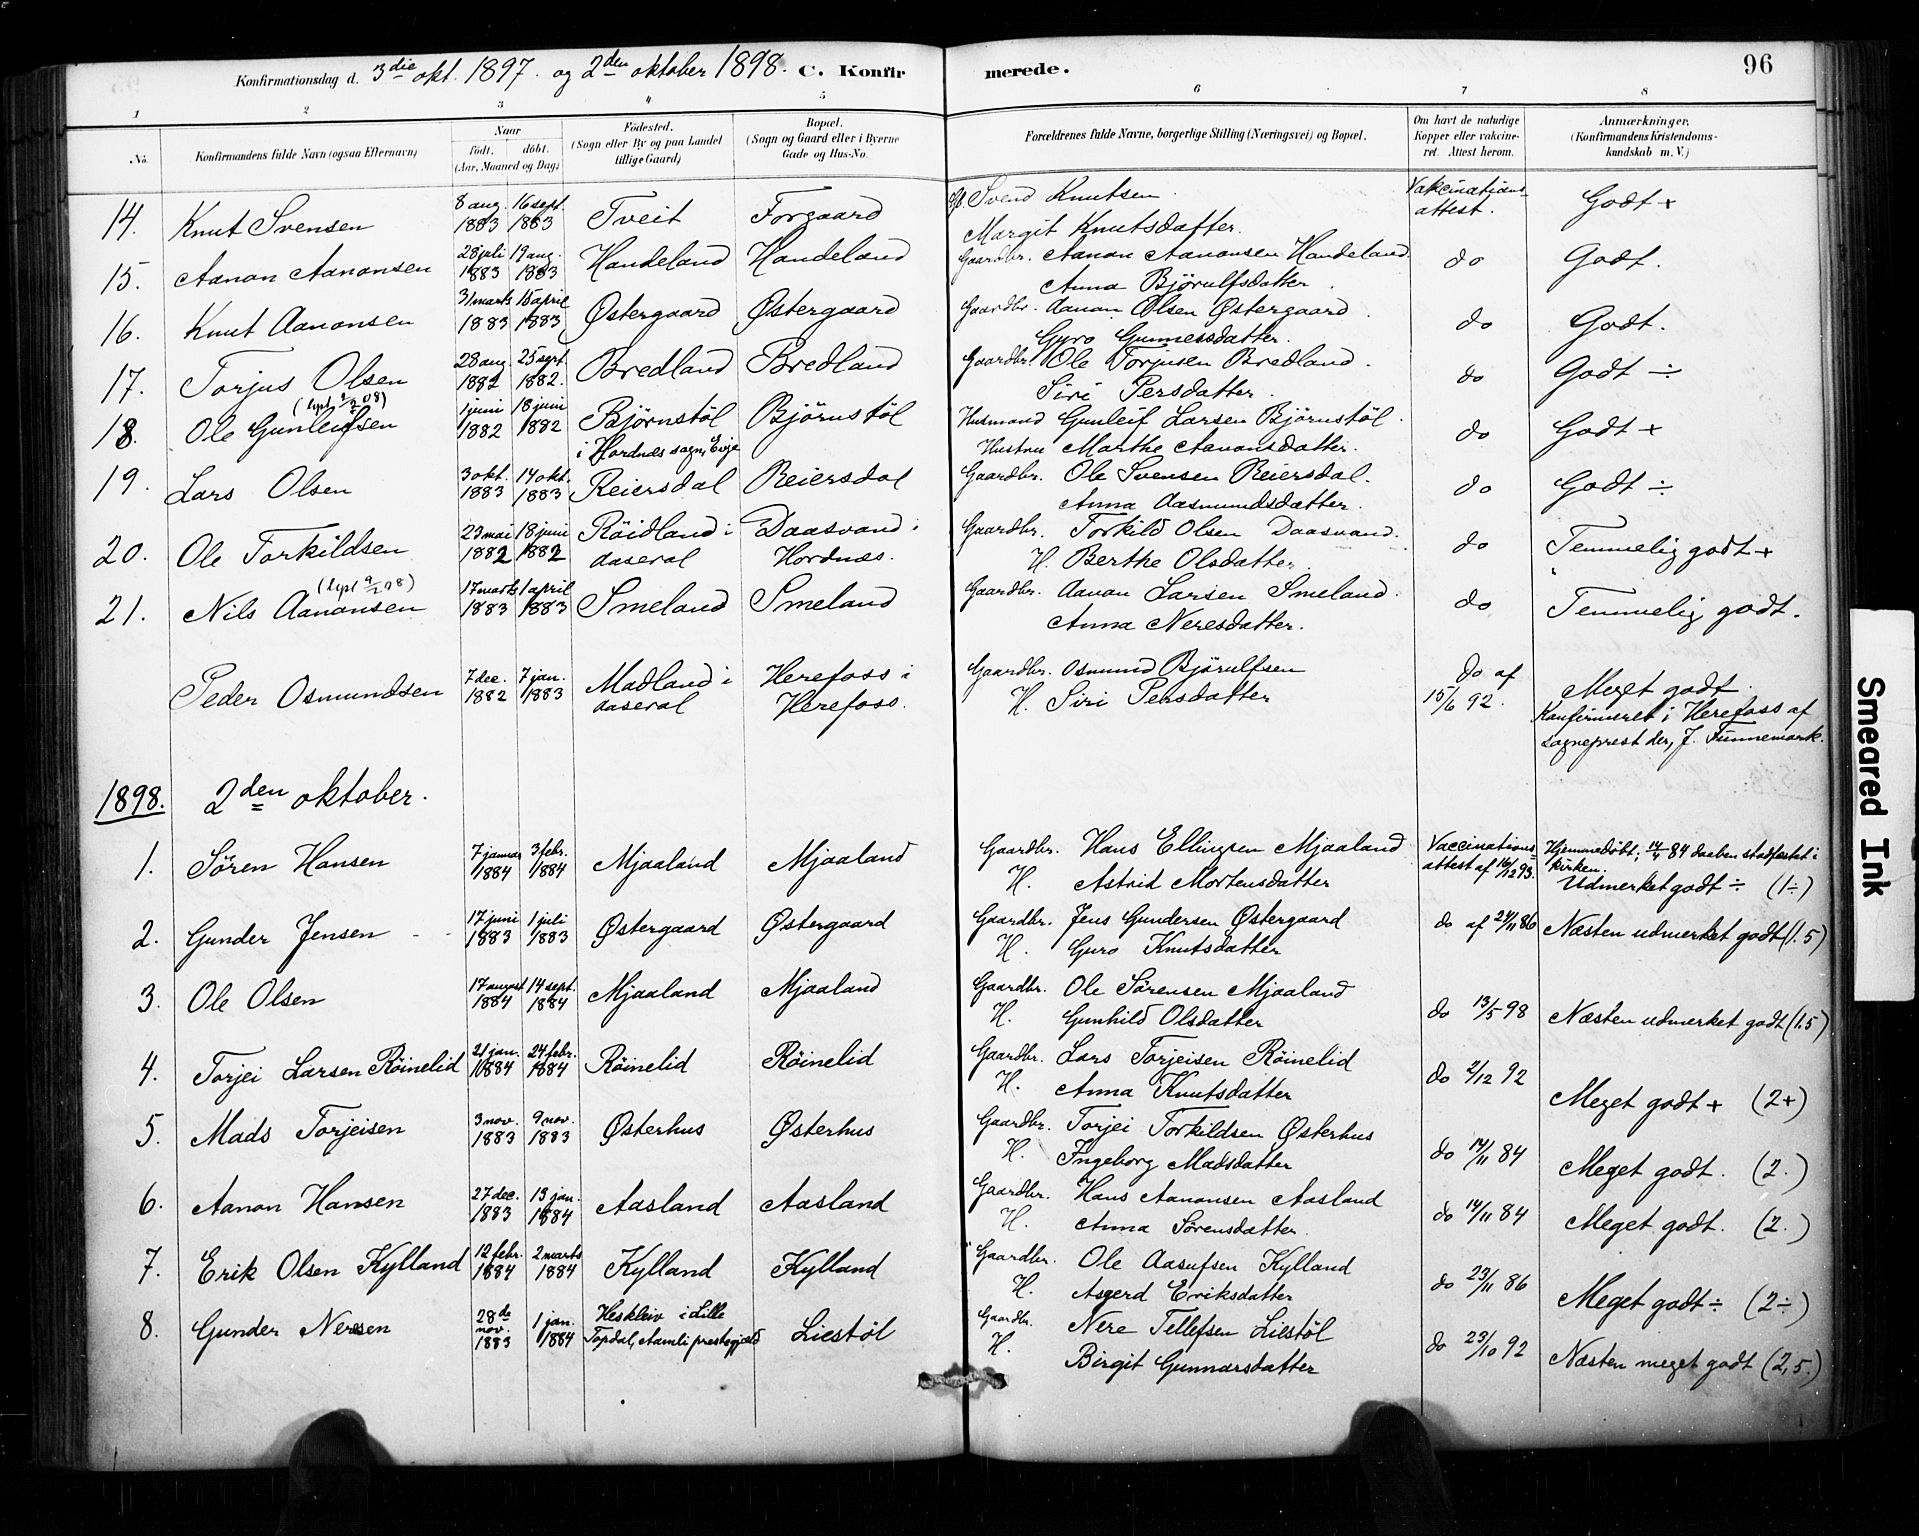 Konfirmationsdag d. 3die okt. 1897. og 2den oktober 1898. C. Konfirmerede. 96
1 2 3 4 5 6 7 8
No. Konfirmandens fulde Navn (ogsaa Efternavn) Naar født. døbt. (Aar, Maaned og Dag) Fødested. (Sogn eller By og paa Landet tillige Gaard) Bopæl. (Sogn og Gaard eller i Byerne Gade og Hus-No. Forældrenes fulde Navne, borgerlige Stilling (Næringsvei) og Bopæl. Om havt de naturlige Kopper eller vakcineret. Attest herom. Anmærkninger. (Konfirmandens Kristendomskundskab m. V.)
14. Knut Svensen 8 aug. 1883 16 sept. 1883 Tveit Forgaard Svend Knutsen Vakcinationsattest. Godt +
Margit Knutsdatter.
15. Aanon Aanonsen 28 juli 1883 19 aug. 1883 Handeland Handeland Gaardbr. Aanon Aanonsen Handeland do Godt.
Anna Bjørulfsdatter.
16. Knut Aanonsen 31 marts 1883 15 april 1883 Østergaard Østergaard Gaardbr. Aanon Olsen Østergaard. do Godt.
Gyro Gunnesdatter.
17. Torjus Olsen 28 aug. 1882 25 sept. 1882. Bredland Bredland Gaardbr. Ole Torjusen Bredland. do Godt ÷
Siri Persdatter.
18. Ole Gunleifsen 1 juni 1882 18 juni 1882 Bjørnstøl i Hordnæs sogn, Evje Bjørnstøl Husmand Gunleif Larsen Bjørnstøl. do Godt +
Hustru Marthe Aanonsdatter.
19. Lars Olsen 3 okt. 1883 14 okt. 1883 Reiersdal Reiersdal Gaardbr. Ole Svensen Reiersdal. do Godt ÷
Anna Aasmundsdatter.
20. Ole Torkildsen 23 mai 1882 18 juni 1882 Røidland i Aaseral Daasvand i Hordnæs. Gaardbr. Torkild Olsen Daasvand. do Temmelig godt +
H. Berthe Olsdatter.
21. Nils Aanonsen 17 marts 1883 1 april 1883 Smeland Smeland Gaardbr. Aanon Larsen Smeland. do Temmelig godt.
Anna Neresdatter.
Peder Osmundsen 7 dec. 1882 7 jan. 1883 Madland i Aaseral Herefoss i Herefoss. Gaardbr. Osmund Bjørulfsen do af 15/6 92. Meget godt.
H. Siri Persdatter Konfirmeret i Herefoss af
sogneprest der, J. Tunnemark.
1898. 2den oktober.
1. Søren Hansen 7 januar 1884 3 febr. 1884 Mjaaland Mjaaland Gaardbr. Hans Ellingsen Mjaaland Vaccinationsattest af 16/12 93. Hjemmedøbt; 14/4 84 daaben stadfæstet i kirken.
H. Astrid Mortensdatter Udmerket godt ÷ (1÷)
2. Gunder Jensen 17 juni 1883 1 juli 1883 Østergaard Østergaard Gaardbr. Jens Gundersen Østergaard do af 24/11 86 Næsten udmerket godt (1.5)
H. Guro Knutsdatter
3. Ole Olsen 17 august 1884 14 sept. 1884 Mjaaland Mjaaland Gaardbr. Ole Sørensen Mjaaland do 13/5 98 Næsten udmerket godt (1.5)
H. Gunhild Olsdatter
4. Torjei Larsen Röinelid 21 jan. 1884 24 febr. 1884 Röinelid Röinelid Gaardbr. Lars Torjeisen Röinelid do 2/12 92 Meget godt + (2+)
H. Anna Knutsdatter
5. Mads Torjeisen 3 nov. 1883 9 nov. 1883 Østerhus Østerhus Gaardbr. Torjei Torkildsen Østerhus do 14/11 84 Meget godt. (2.)
H. Ingeborg Madsdatter
6. Aanon Hansen 27 dec. 1883 13 jan. 1884 Aasland Aasland Gaardbr. Hans Aanonsen Aasland do 14/11 84 Meget godt. (2.)
H. Anna Sørensdatter.
7. Erik Olsen Kylland 12 febr. 1884 2 marts 1884 Kylland Kylland Gaardbr. Ole Aasufsen Kylland do 23/11 86 Meget godt ÷ (2÷)
H. Asgerd Eriksdatter
8. Gunder Nersen 28de nov. 1883 1 jan. 1884 Heskleiv i Lille Topdal, Aamli prestegjæld Liestøl Gaardbr. Nere Tellefsen Liestøl do 23/10 92 Næsten meget godt (2,5.)
H. Birgit Gunnarsdatter
Smeared Ink